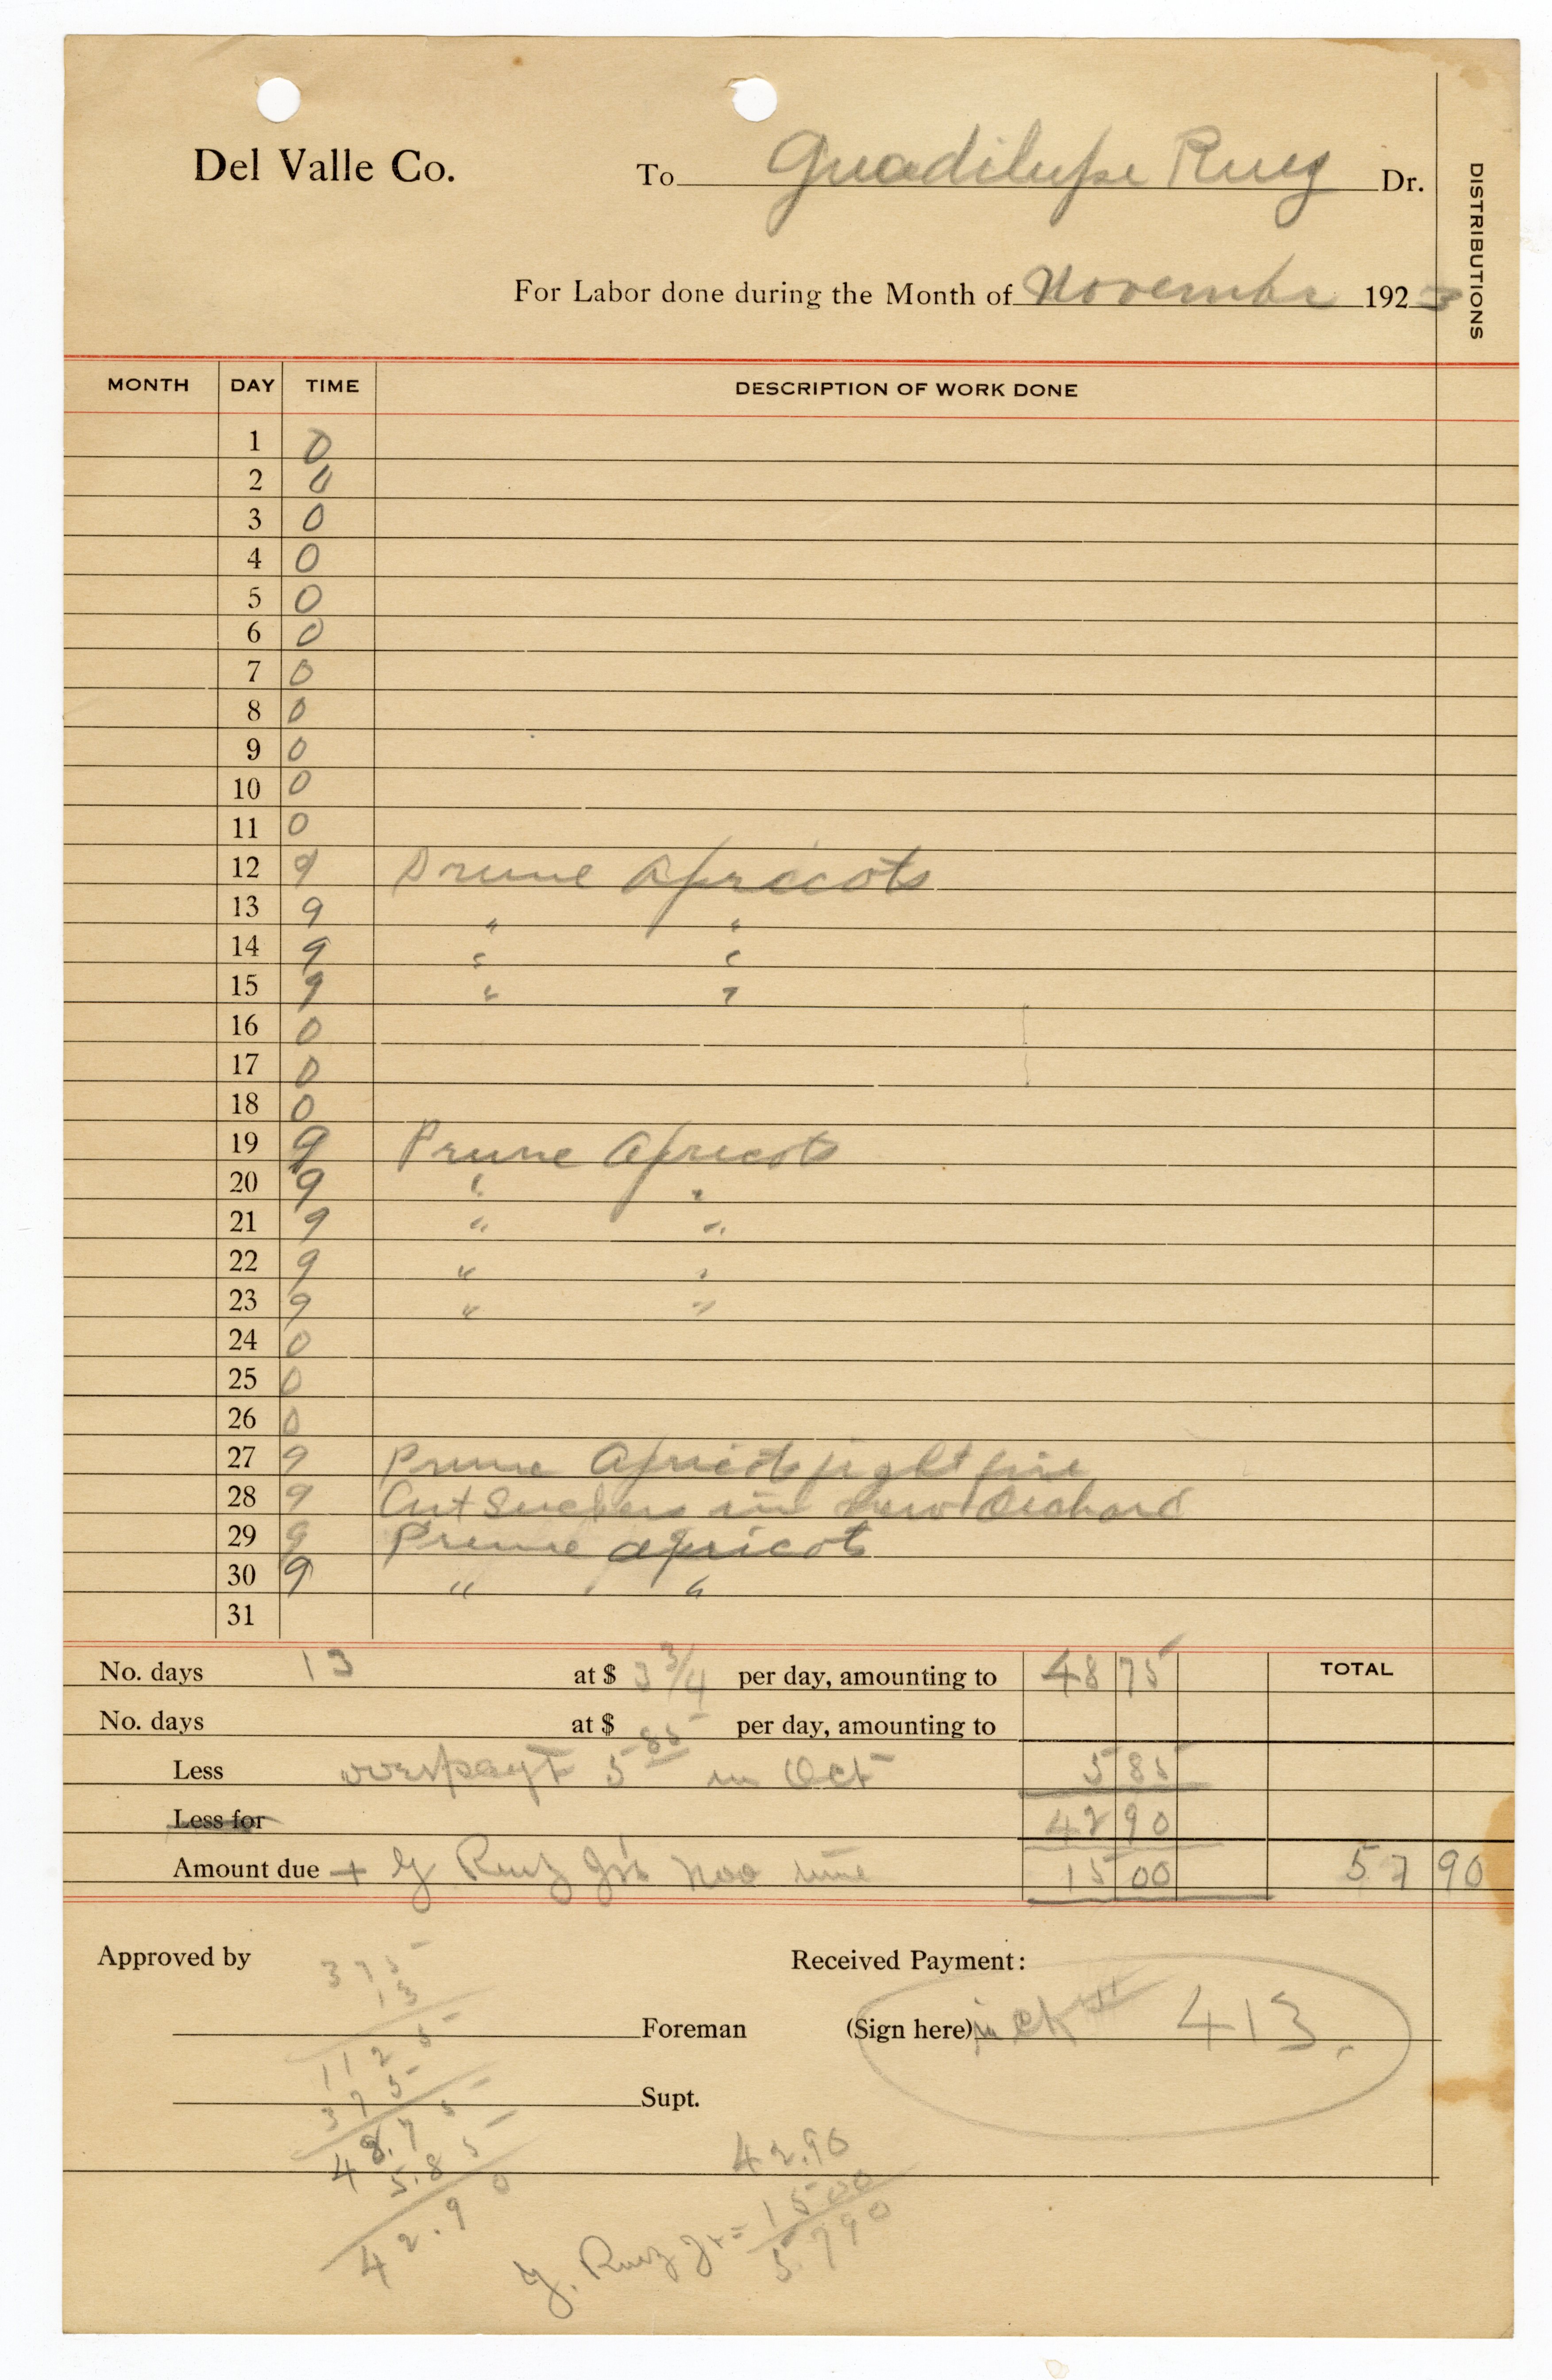 Del Valle Co. To Guadilupe Ruiz Dr.
DISTRIBUTIONS
For Labor done during the Month of November 1923
MONTH DAY TIME DESCRIPTION OF WORK DONE
1 0
2 0
3 0
4 0
5 0
6 0
7 0
8 0
9 0
10 0
11 0
12 9 Prune Apricots
13 9 " "
14 9 " "
15 9 " "
16 0
17 0
18 0
19 9 Prune Apricots
20 9 " "
21 9 " "
22 9 " "
23 9 " "
24 0
25 0
26 0
27 9 Prune Apricots fight fire
28 9 Cut Suckers in new Orchard
29 9 Prune apricots
30 9 " "
31
No. days 13 at $ 3 3/4 per day, amounting to 48 75 TOTAL
No. days at $ per day, amounting to
Less overpayt 5 85 in Oct 5 85
Less for 42 90
Amount due + G Ruiz Jr's Nov time 15 00 57 90
Approved by Received Payment:
Foreman (Sign here) in ck 413.
Supt.
375
13
1125
375
48.75
5.85
42.90
42.90
G. Ruiz Jr = 15 00
57 90